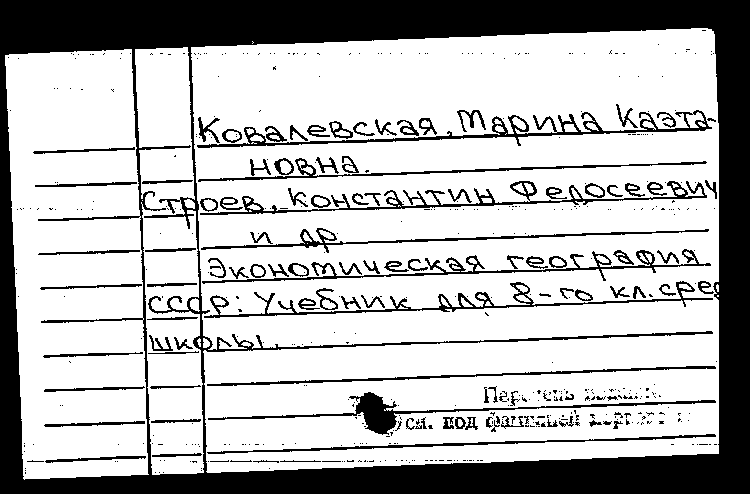 Ковалевская, Марина Каэта-
новна.
Строев, Константин Федосеевич
и др.
Экономическая география
СССР: Учебник для 8-го кл. сред
школы.
см. под фамилией